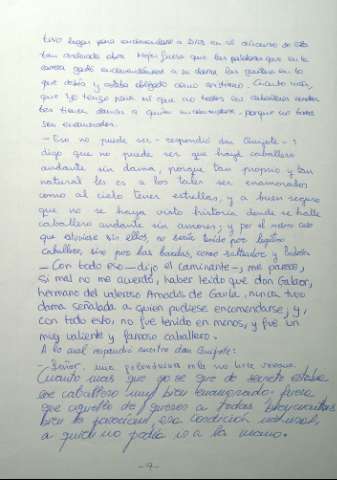 tuvo lugar para encomendarse a Dios en el discurso de esta
tan acelerada obra. Mejor fuera que las palabras que en la
carrera gastó encomendándose a su dama las gastara en lo
que debía y estaba obligado como cristiano. Cuanto más,
que yo tengo para mí que no todos los caballeros andan-
tes tienen damas a quien encomendarse, porque no todos
son enamorados.
- Eso no puede ser - respondió don Quijote - :
digo que no puede ser que haya caballero
andante sin dama, porque tan proprio y tan
natural les es a los tales ser enamorados
como al cielo tener estrellas, y a buen seguro
que no se haya visto historia donde se halle
caballero andante sin amores; y por el mesmo caso
que estuviese sin ellos, no sería tenido por legítimo
caballero, sino por bastardo, como salteador y ladrón
- Con todo eso - dijo el caminante -, me parece,
si mal no me acuerdo, haber leído que don Galaor,
hermano del valeroso Amadís de Gaula, nunca tuvo
dama señalada a quien pudiese encomendarse; y,
con todo esto, no fue tenido en menos, y fue un
muy valiente y famoso caballero.
A lo cual respondió nuestro don Quijote:
- Señor, una golondrina sola no hace verano.
Cuanto más que yo sé que de secreto estaba
ese caballero muy bien enamorado; fuera
que aquello de querer a todas
bien le parecían, era condición natural,
a quien no podía ir a la mano.
- 9 -